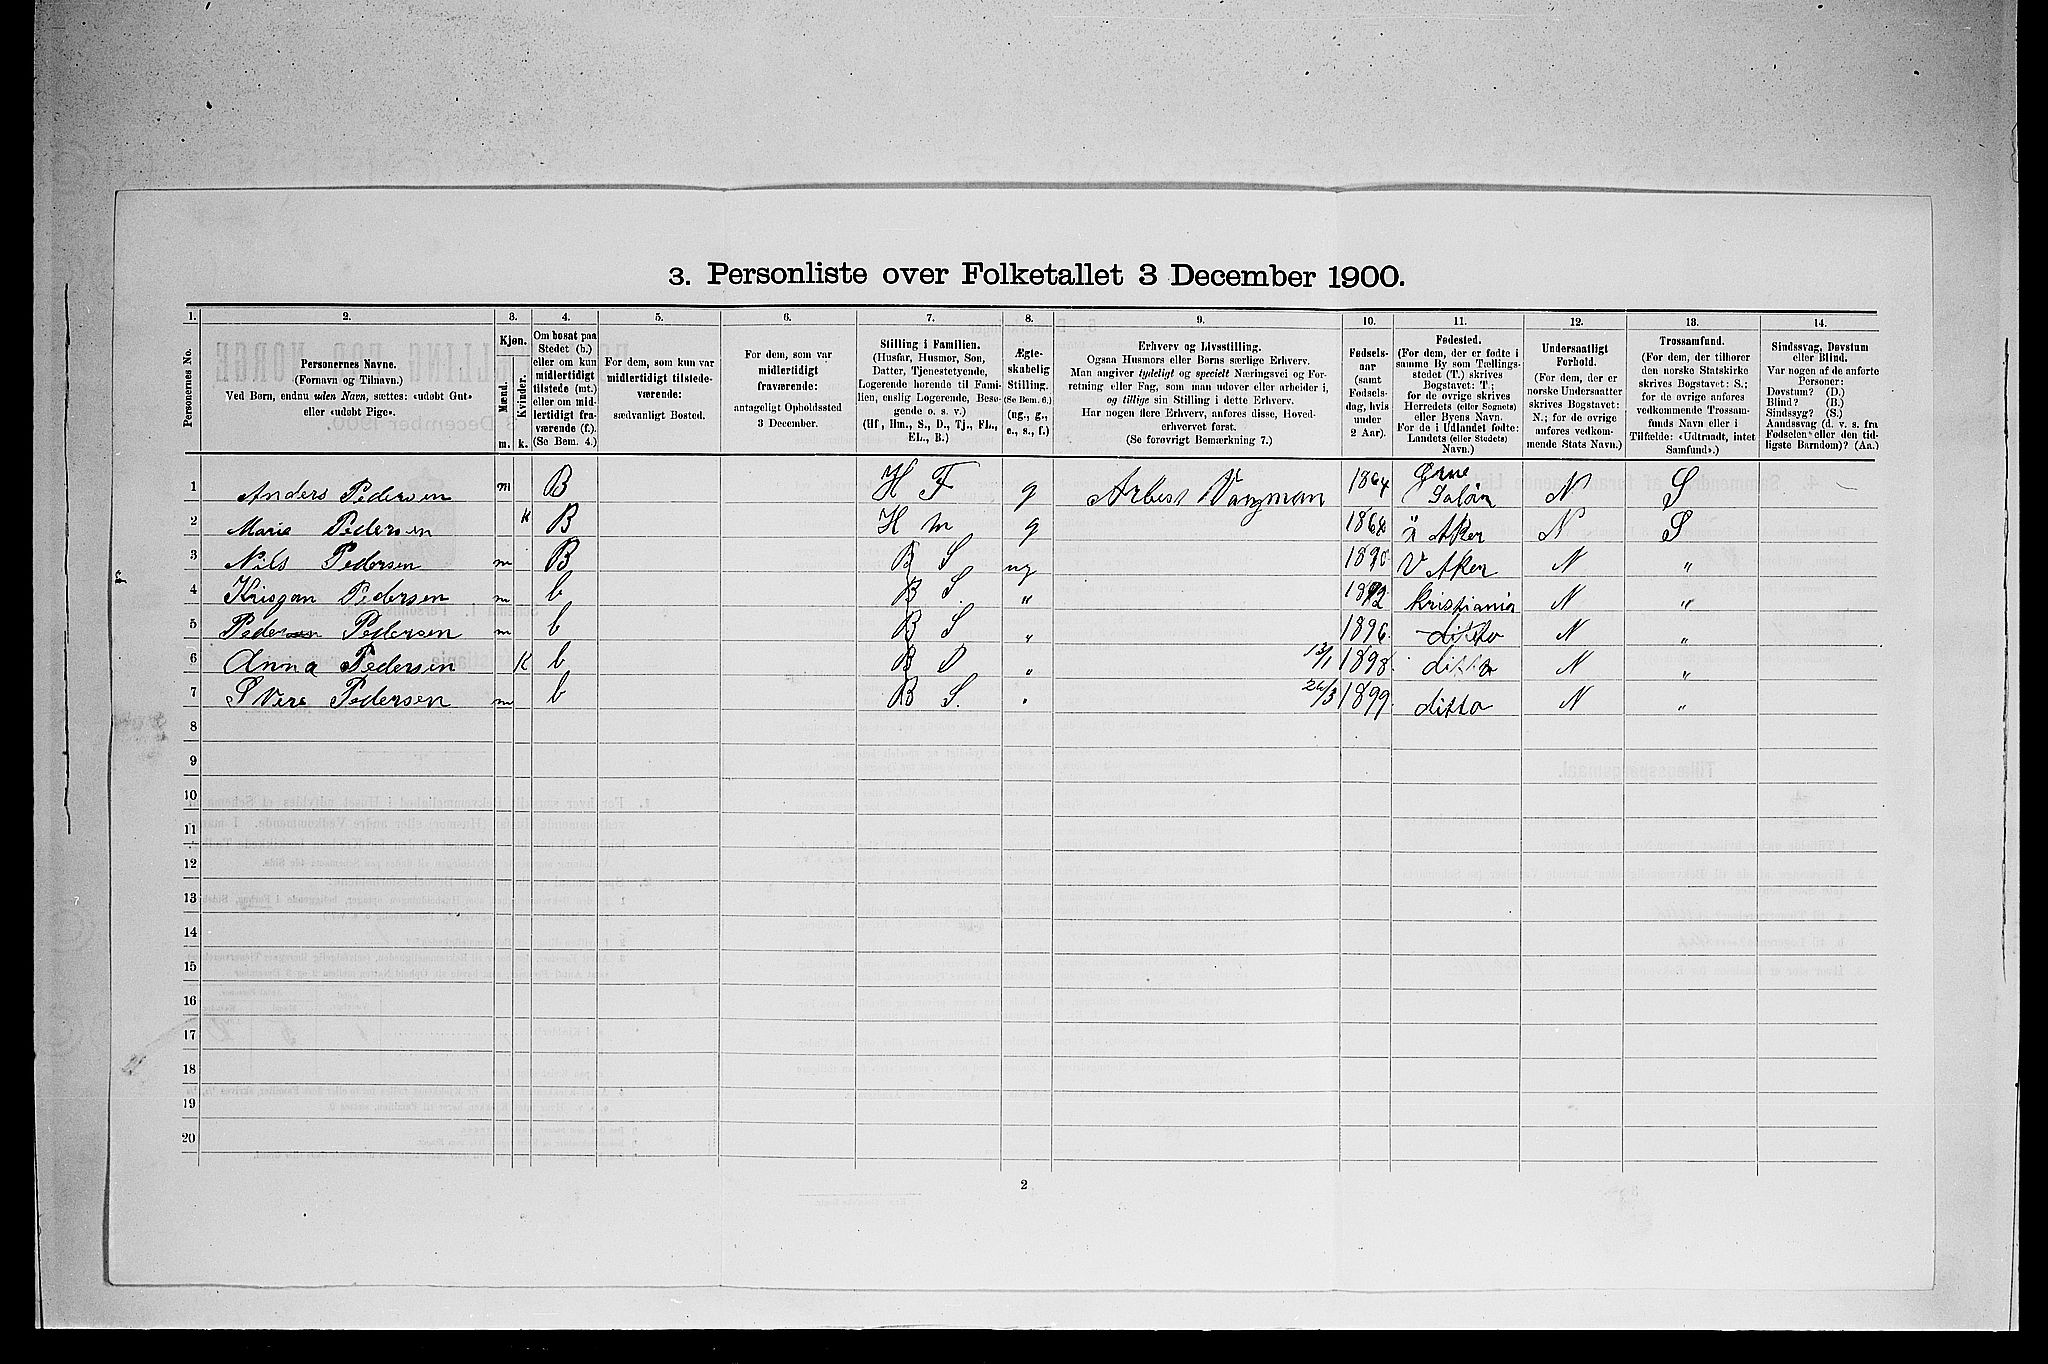 3. Personliste over Folketallet 3 December 1900.
1. 2. 3. 4. 5. 6. 7. 8. 9. 10. 11. 12. 13. 14.
Personernes No.
Personernes Navne.
(Fornavn og Tilnavn.)
Ved Børn, endnu uden Navn, sættes: «udøbt Gut»
eller «udøbt Pige».
Kjøn.
Mænd.
Kvinder.
m. k.
Om bosat paa
Stedet (b.)
eller om kun
midlertidigt
tilstede (mt.)
eller om mid-
lertidigt fra-
værende (f.).
(Se Bem. 4.)
For dem, som kun var
midlertidigt tilstede-
værende:
sædvanligt Bosted.
For dem, som var
midlertidigt
fraværende:
antageligt Opholdssted
3 December.
Stilling i Familien.
(Husfar, Husmor, Søn,
Datter, Tjenestetyende,
Logerende hørende til Fami-
lien, enslig Logerende, Besø-
gende o. s. v.)
(Hf, Hm., S., D., Tj., FL.,
EL., B.)
Ægte-
skabelig
Stilling.
(Se Bem. 6.)
(ug., g.,
e., s., f.)
Erhverv og Livsstilling.
Ogsaa Husmors eller Børns særlige Erhverv.
Man angiver tydeligt og specielt Næringsvei og For-
retning eller Fag, som man udøver eller arbeider i,
og tillige sin Stilling i dette Erhverv.
Har nogen flere Erhverv, anføres disse, Hoved-
erhvervet først.
(Se forøvrigt Bemærkning 7.)
Fødsels-
aar
(samt
Fødsels-
dag, hvis
under
2 Aar).
Fødested.
(For dem, der er fødte i
samme By som Tællings-
stedet (T.) skrives
Bogstavet: T.;
for de øvrige skrives
Herredets (eller Sognets)
eller Byens Navn.
For de i Udlandet fødte:
Landets (eller Stedets)
Navn.)
Undersaatligt
Forhold.
(For dem, der er
norske Undersaatter
skrives Bogstavet:
N.; for de øvrige
anføres vedkom-
mende Stats Navn.)
Trossamfund.
(For dem, der tilhører
den norske Statskirke
skrives Bogstavet: S.;
for de øvrige anføres
vedkommende Trossam-
funds Navn eller i
Tilfælde: «Udtraadt, intet
Samfund».)
Sindssvag, Døvstum
eller Blind.
Var nogen af de anførte
Personer:
Døvstum? (D.)
Blind? (B.)
Sindssyg? (S.)
Aandssvag (d. v. s. fra
Fødselen eller den tid-
ligste Barndom)? (Aa.)
1 Anders Pedersen m B H F g 1864 N S
2 Marie Pedersen K B H m g Aker N S
3 Nils Pedersen m B B S ug V Aker N "
4 Krisjan Pedersen m b B S. " Kristiania N "
5 Peder Pedersen m b B S " 1896 ditto N "
6 Anna Pedersen K b B D " 13/1 1898 ditto N "
7 SVere Pedersen m b B S. " 26/3 1899 ditto N "
8
9
10
11
12
13
14
15
16
17
18
19
20
2